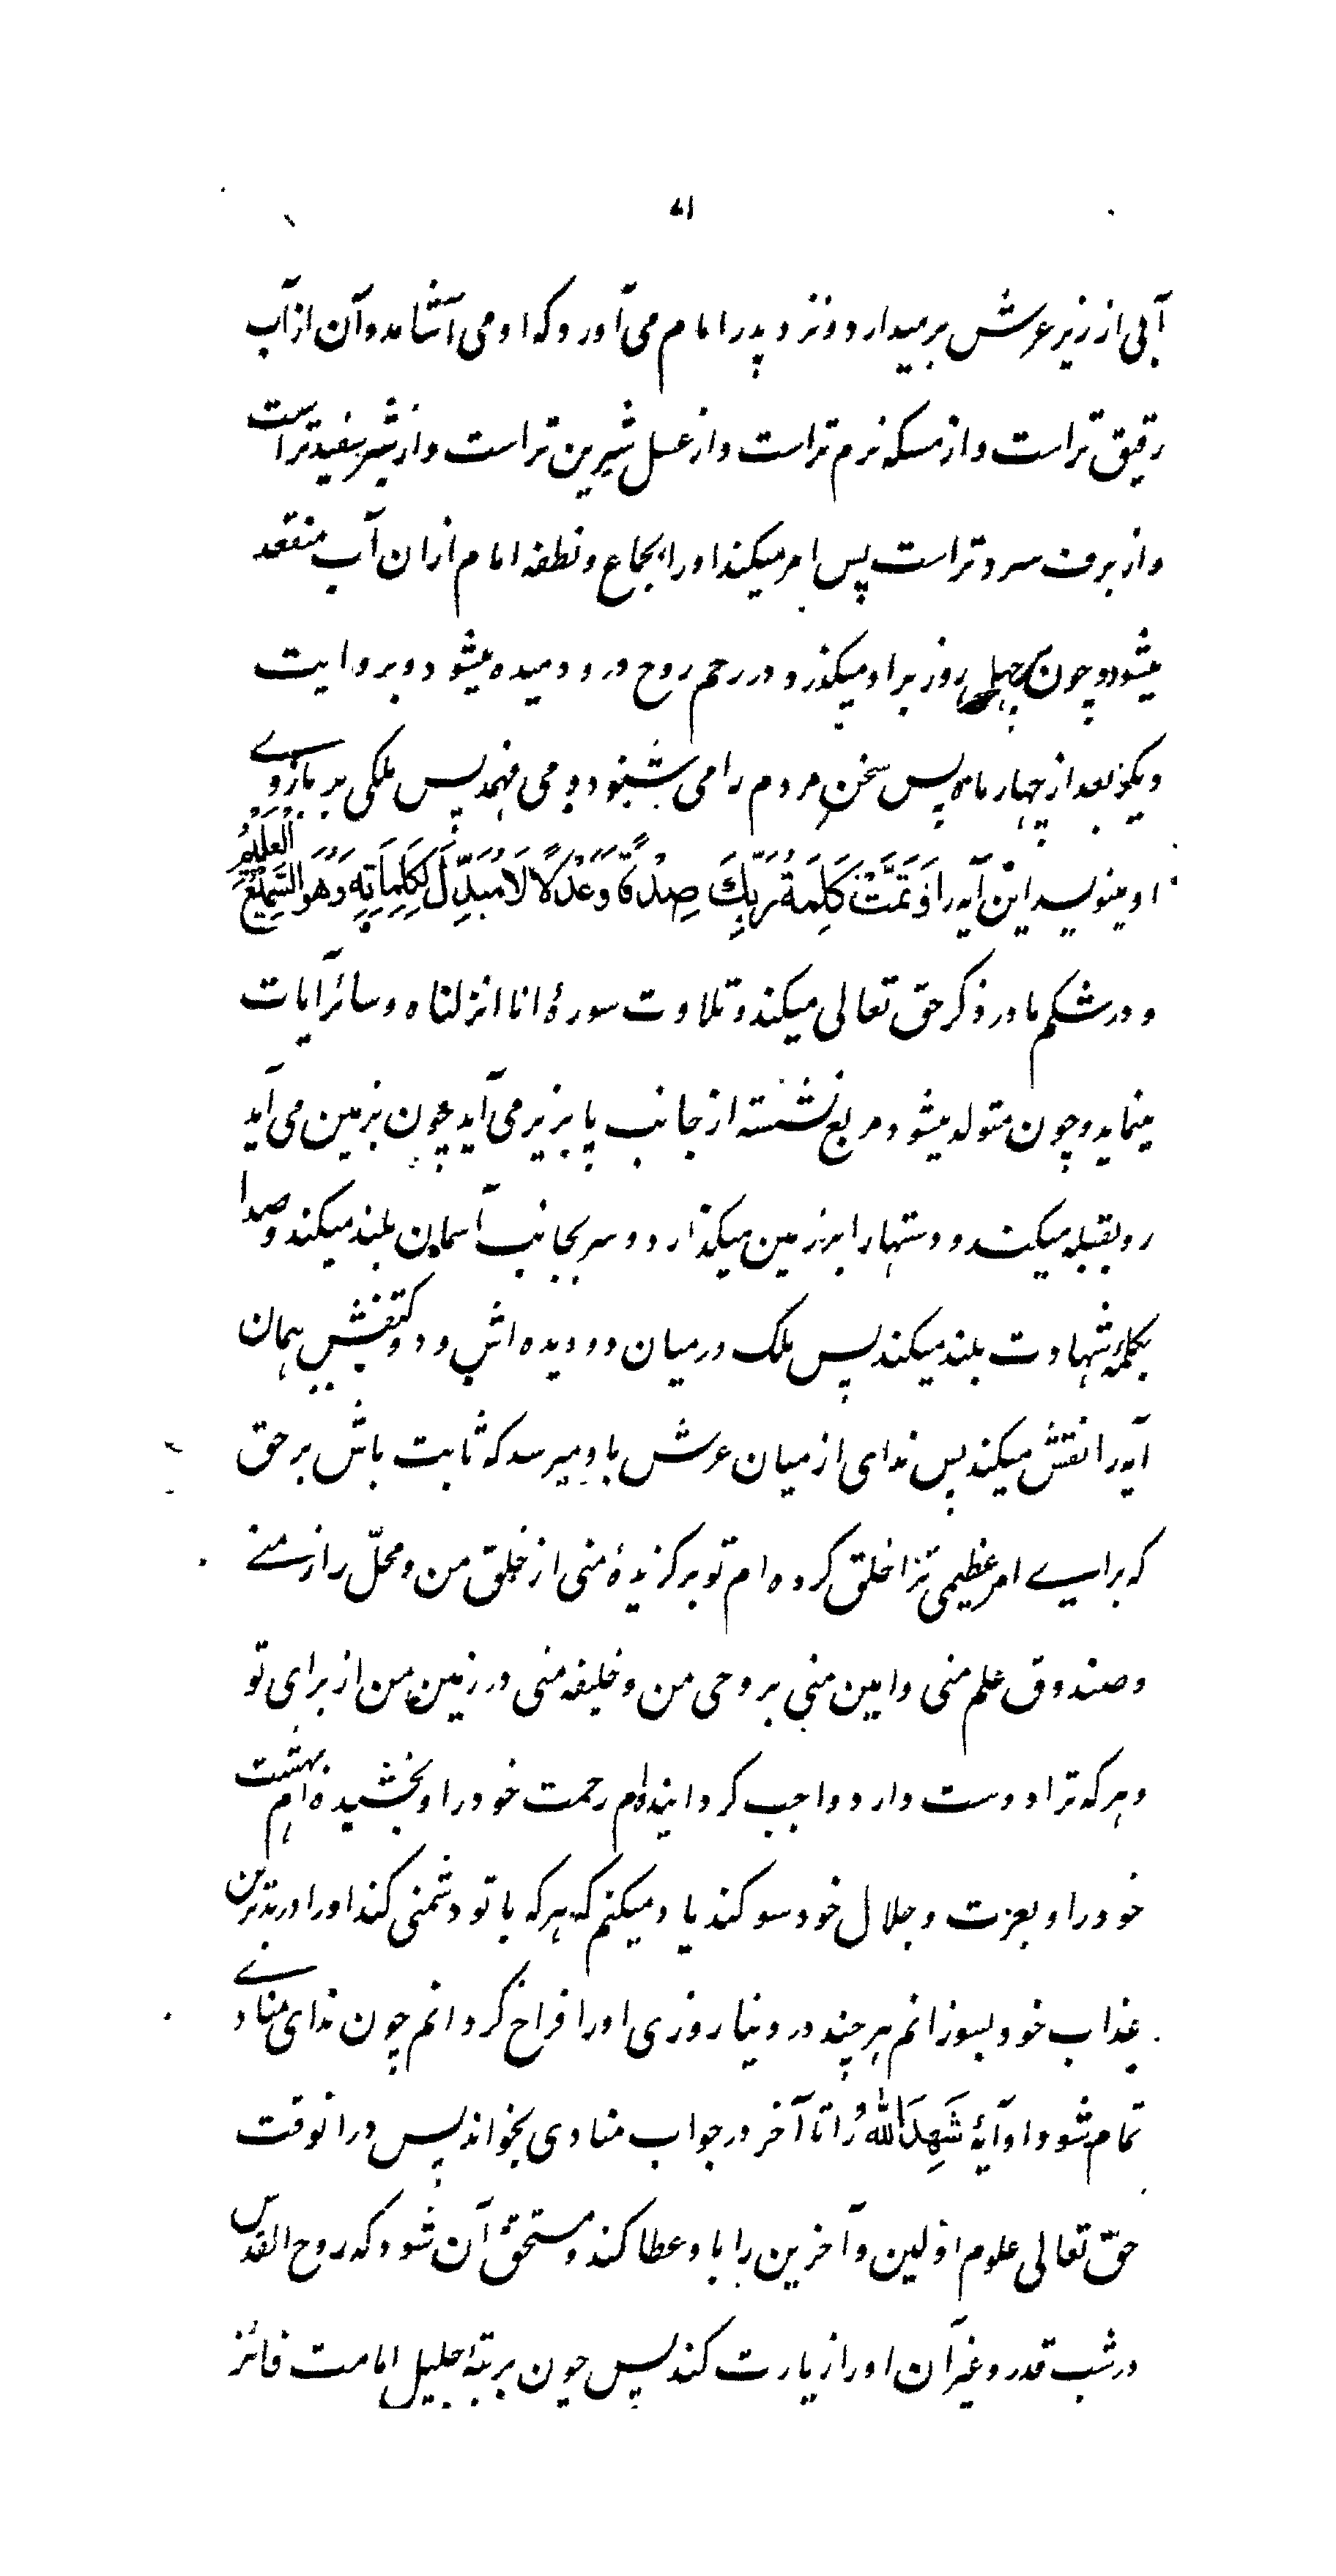 ۷۱
آبی از زیر عرش برمیدارد و نزد پدر امام می آورد که او می آشامد و آن از آب
رقیق تراست و از مسکه نرم تراست و از عسل شیرین تراست و از شیر سفید تراست
و از برف سرد تراست پس امر میکند او را بجماع و نطفه امام ازان آب منعقد
میشود و چون چهل روز براو میگذرد در رحم روح درو دمیده میشود و بروایت
دیگر بعد از چهار ماه پس سخن مردم را می شنود و می فهمد پس ملکی بر بازوے
او مینویسد این آیه را وَتَمَّتْ كَلِمَةُ رَبِّكَ صِدْقًا وَعَدْلًا لَا مُبَدِّلَ لِكَلِمَاتِهِ وَهُوَ السَّمِيعُ الْعَلِيمُ
و در شکم مادر ذکر حق تعالی میکند و تلاوت سورۀ انا انزلناه و سائر آیات
مینماید و چون متولد میشود مربع نشسته از جانب پا بزیر می آید چون بزمین می آید
رو بقبله میکند و دستها را بر زمین میگذارد و سر بجانب آسمان بلند میکند و صدا
بکلمۀ شهادت بلند میکند پس ملک در میان دو دیده اش و دو کتفش همان
آیه را نقش میکند پس ندای از میان عرش باو میرسد که ثابت باش بر حق
که براے امر عظیمی ترا خلق کرده ام تو برگزیدۀ منی از خلق من و محلّ راز منے
و صندوق علم منی و امین منی بر وحی من و خلیفه منی در زمین من از برای تو
و هرکه ترا دوست دارد واجب گردانیده ام رحمت خود را و بخشیده ام بهشت
خود را و بعزت و جلال خود سوگند یاد میکنم که هرکه با تو دشمنی کند او را در بدترین
عذاب خود بسوزانم هرچند در دنیا روزی او را فراخ گردانم چون ندای منادے
تمام شود او آیۀ شَهِدَ اللهُ را تا آخر در جواب منادی بخواند پس درانوقت
حقّ تعالی علوم اوّلین و آخرین را باو عطا کند و مستحقّ آن شود که روح القدس
در شب قدر و غیر آن او را زیارت کند پس چون بمرتبۀ جلیل امامت فائز